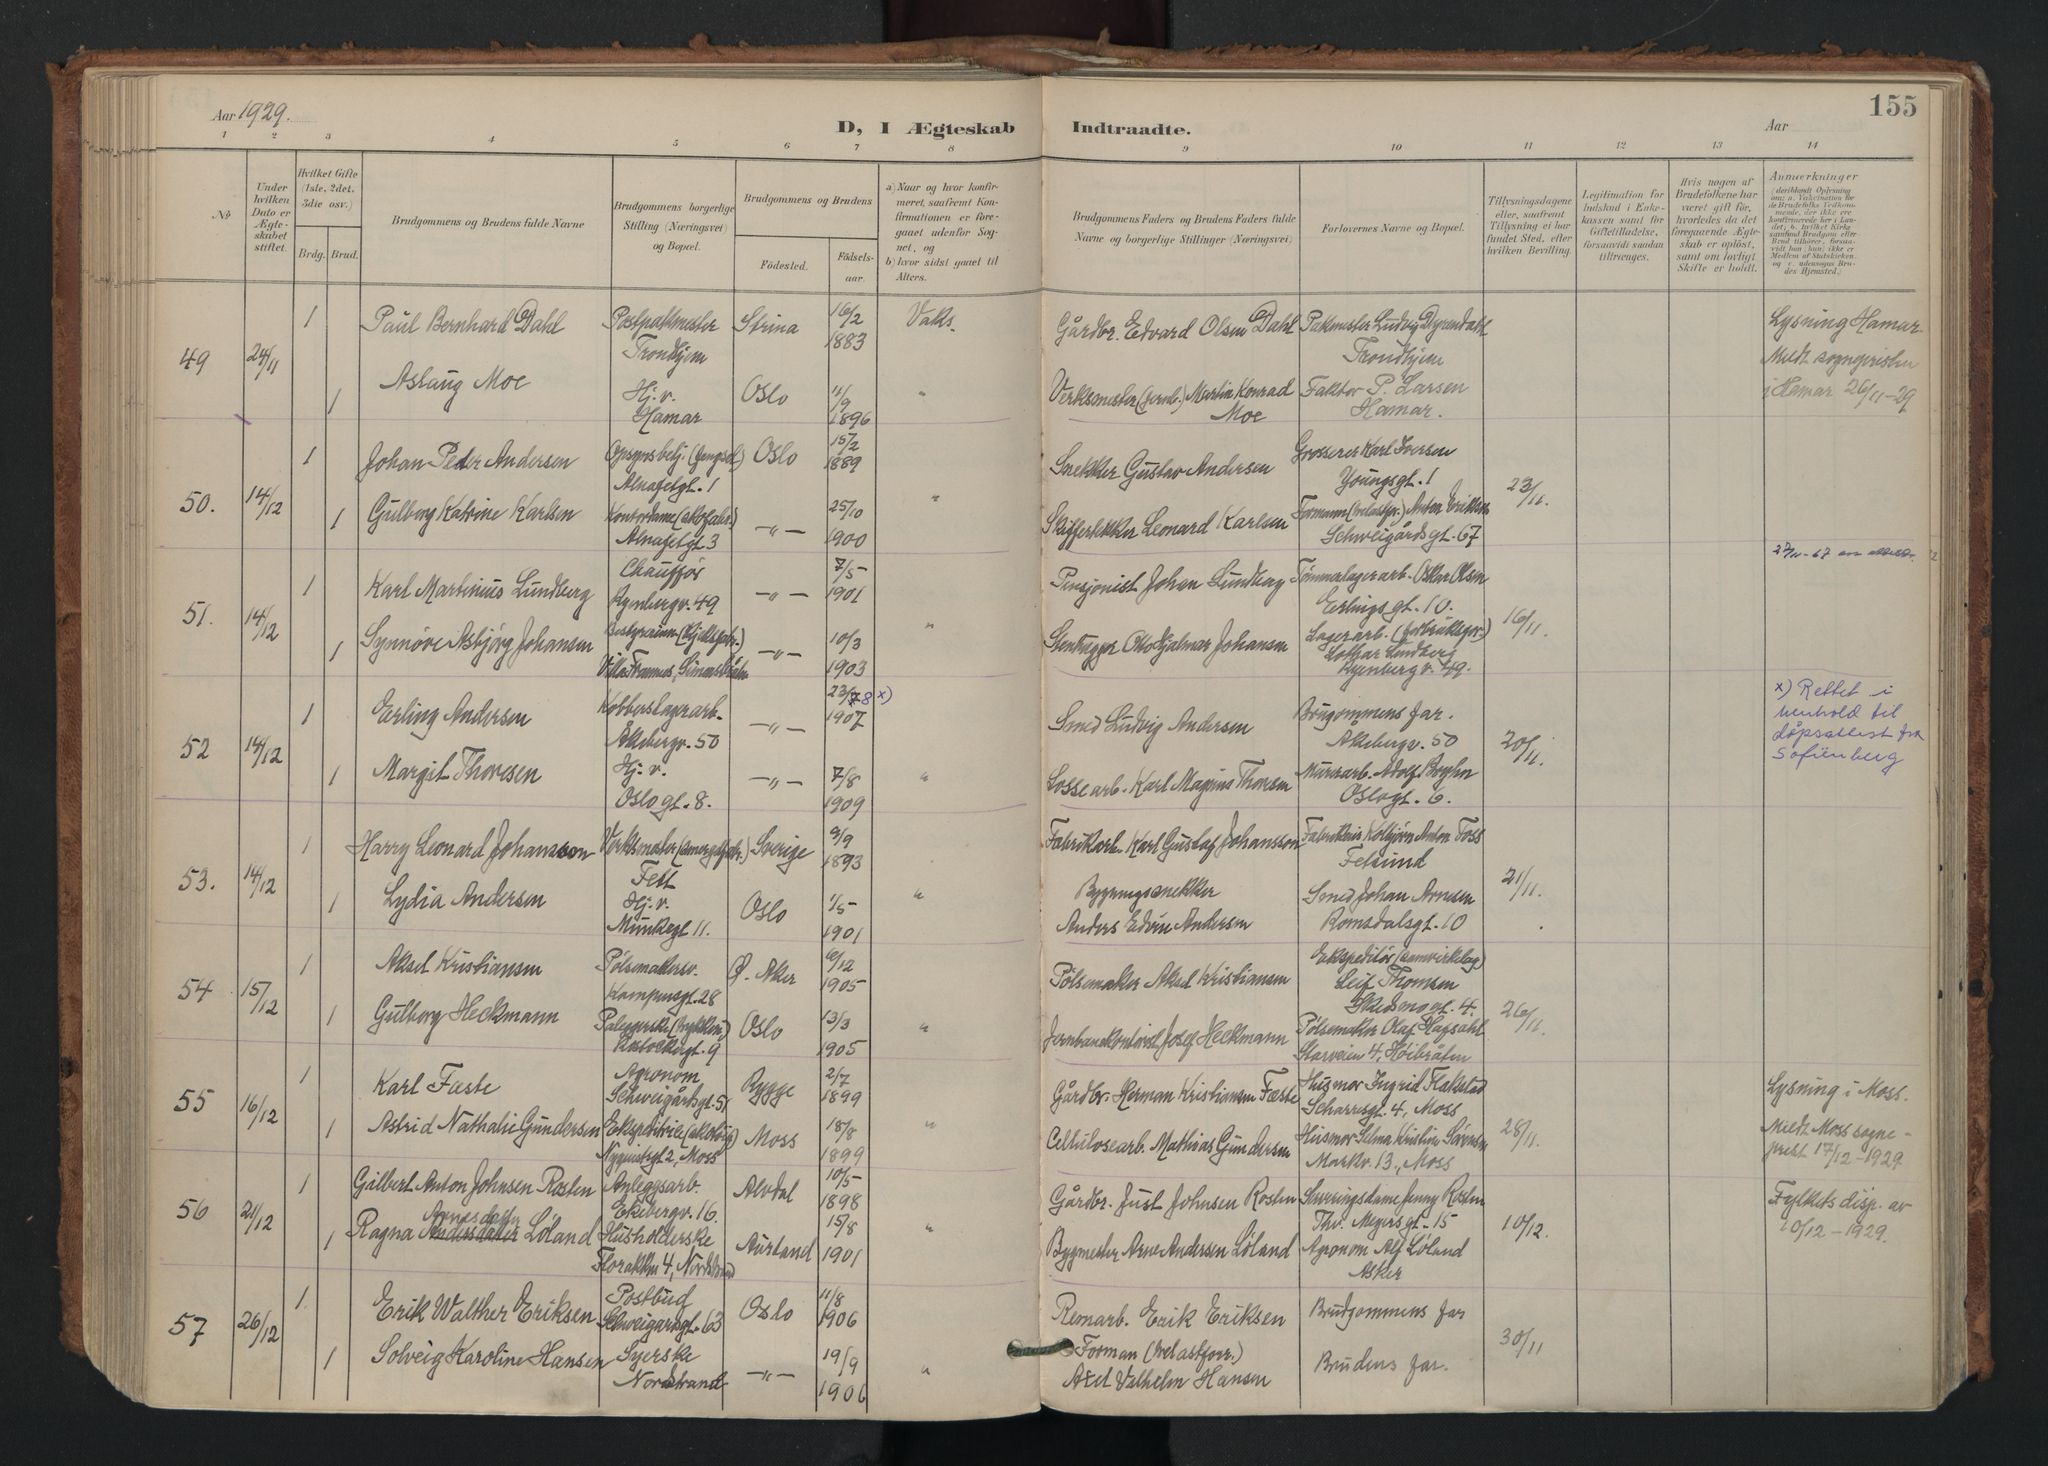 Aar 1929.
D, I Ægteskab Indtraadte.
Aar 155
1 2 3 4 5 6 7 8 9 10 11 12 13 14
No
Under hvilken Dato er Ægteskabet stiftet.
Hvilket Gifte (1ste, 2det, 3die osv.)
Brdg. Brud.
Brudgommens og Brudens fulde Navne
Brudgommens borgerlige Stilling (Næringsvei) og Bopæl.
Brudgommens og Brudens
Födested. Födselsaar.
a) Naar og hvor konfirmeret, saafremt Konfirmationen er foregaaet udenfor Sognet, og
b) hvor sidst gaaet til Alters.
Brudgommens Faders og Brudens Faders fulde Navne og borgerlige Stillinger (Næringsvei)
Forlovernes Navne og Bopæl.
Tillysningsdagene eller, saafremt Tillysning ei har fundet Sted, efter hvilken Bevilling.
Legitimation for Indskud i Enkekassen samt for Giftetilladelse, forsaavidt saadan tiltrænges.
Hvis nogen af Brudefolkene har været gift før, hvorledes da det foregaaende Ægteskab er oplöst, samt om lovligt Skifte er holdt.
Anmærkninger
49 24/11 1 Paul Bernhard Dahl Postpakmester Trondhjem Strina 16/2 1883 Vaks. Gårdbr. Edvard Olsen Dahl Pakmester Ludvig Dyrendahl Trondhjem Lysning Hamar.
1 Aslaug Moe Hj. v. Hamar Oslo 11/9 1896 " Verksmester (jernb.) Martin Konrad Moe Faktor P. Larsen Hamar. Meldt sognepresten i Hamar 26/11-29
50. 14/12 1 Johan Peder Andersen Alnafetgt. 1 Oslo 15/2 1889 Snekker Gustav Andersen Grosserer Karl Iversen Youngsgt. 1 23/11.
1 Gulborg Katrine Karlsen Alnafetgt. 3 -"- 25/10 1900 " Skiffertekker Leonard Karlsen Formann Anton Eriksen Schweigårdsgt. 67
51. 14/12 1 Karl Martinius Lundberg Chauffør Ryenbergv. 49 -"- 7/5 1901 Pensjonist Johan Lundberg Tømmerlagerarb. Oskar Olsen Eerlingsgt. 10. 16/11.
1 Synnøve Asbjørg Johansen -"- 10/3 1903 " Stenhugger Otto Hjalmar Johansen Lagerarb. Lundberg Ryenbergv. 49.
52 14/12 1 Erling Andersen Kobberslagerarb. Åkebergv. 50 -"- 23/7 8 x) 1907 Smed Ludvig Andersen Brugommens far. Akebergv. 50 20/11. x) Rettet i henhold til dåpsattest fra Sofienberg
1 Margit Thoresen Hj. v. Oslogt. 8. -"- 7/8 1909 " Losse arb. Karl Magnus Thoresen Murerarb. Adolf Bryhn Oslogt. 6.
53. 14/12 1 Harry Leonard Johansson Sverige 9/9 1893 Fabrikarb. Karl Gustaf Johansson Kolbjørn Anton Foss Fetsund 21/11.
1 Lydia Andersen Hj. v. Munkegt 11. Oslo 1/5 1901 " Bygningssnekker Anders Edvin Andersen Smed Johan Arnesen Romsdalsgt. 10
54 15/12 1 Aksel Kristiansen Pølsemakersv. Kampensgt. 28 Ø. Aker 6/12 1905 Pølsemaker Aksel Kristiansen Ekspeditør (samvirkelag) Leif Thomsen Skedsmogt. 4. 26/11.
1 Gulborg Heckmann Rostockergt. 9 Oslo 13/3 1905 " Jernbanekontorist Josef Heckmann Pølsemaker Olaf Hagsahl Starveien 4, Høibråten
55 16/12 1 Karl Fæste Agronom Schweigårdsgt. 51 Rygge 2/7 1899 Gårdbr. Herman Kristiansen Fæste Husmor Ingrid Flakstad Scharresgt. 4, Moss 28/11. Lysning i Moss.
1 Astrid Nathalie Gundersen Moss 18/8 1899 " Cellulosearb. Mathias Gundersen Husmor Selma Kristine Sørensen Markv. 13., Moss Meldt Moss sogneprest 17/12-1929
56 21/12 1 Gilbert Anton Johnsen Rosten Anleggsarb. Ekebergv. 16. Alvdal 10/5 1898 Gårdbr. Just Johnsen Rosten Jenny Rosten Thv. Meyersgt. 15 10/12. Fylkets disp. av 10/12-1929.
1 Ragna Arnesdatter Andersdatter Løland Husholderske Florakkn 4, Nordstrand Aurland 15/8 1901 " Bygmester Arne Andersen Løland Agronom Alf Løland Asker
57 26/12 1 Erik Walther Eriksen Postbud Schweigårdsgt. 63 Oslo 11/8 1906 Remarb. Erik Eriksen Brudgommens far 30/11
1 Solveig Karoline Hansen Syerske Nordstrand -"- 19/9 1906 " Forman Axel Valhelm Hansen Brudens far.